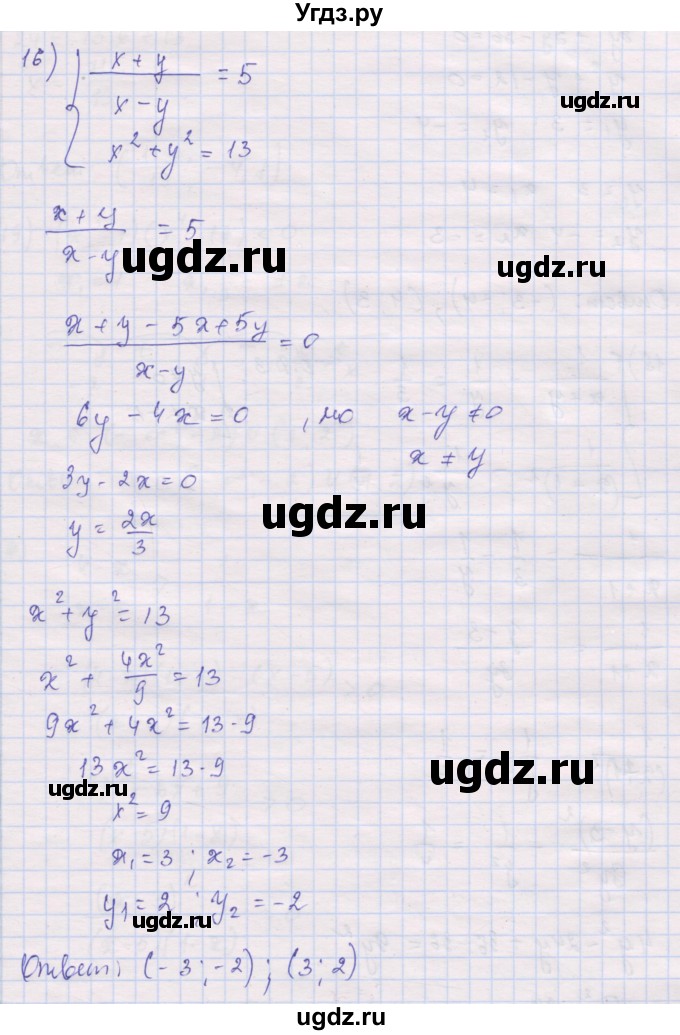 Угдз.ру
16) { (x + y)/(x - y) = 5
x² + y² = 13
ugdz.ru
(x + y)/(x - y) = 5
ugdz.ru
ugdz.ru
(x + y - 5x + 5y)/(x - y) = 0
6y - 4x = 0 , но x - y ≠ 0
x ≠ y
3y - 2x = 0
ugdz.ru
ugdz.ru
y = 2x/3
x² + y² = 13
x² + 4x²/9 = 13
9x² + 4x² = 13·9
13x² = 13·9
ugdz.ru
ugdz.ru
x² = 9
x₁ = 3 ; x₂ = -3
y₁ = 2 ; y₂ = -2
ugdz.ru
Ответ: (-3; -2); (3; 2)
Угдз.ру